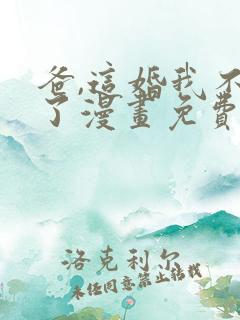 爸,這婚我不
了漫畫免費
洛克利尔
未经同意禁止转载